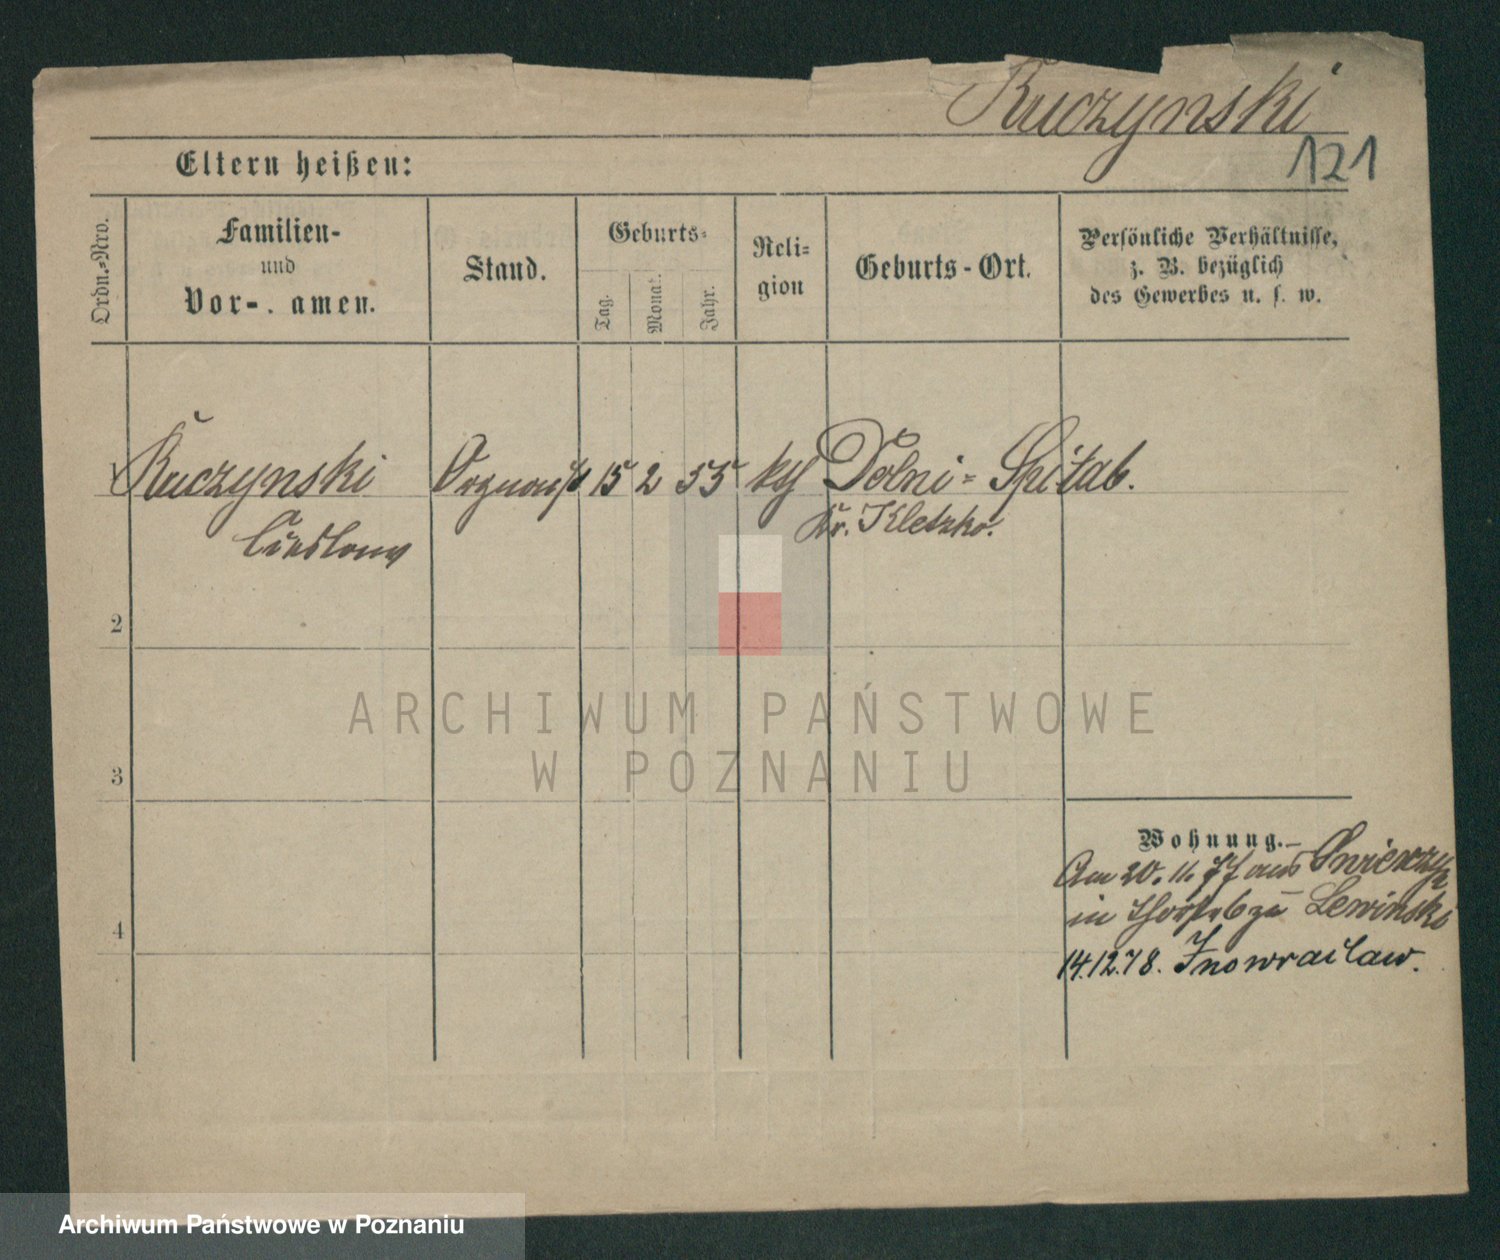 Ruczynski
121
Eltern heißen:
Ordn.-Nro.
Familien-
und
Vor- . amen.
Stand.
Geburts-
Tag.
Monat.
Jahr.
Reli-
gion
Geburts-Ort.
Persönliche Verhältnisse,
z. B. bezüglich
des Gewerbes u. s. w.
1 Ruczynski 15 2 55 kth Dolni-Spitab.
Kr. Kletzko.
2
3
4
Wohnung.
Am 20. 11. 77 aus
in zu Lewinski
14.12.78. Inowraclaw.
ARCHIWUM PAŃSTWOWE
W POZNANIU
Archiwum Państwowe w Poznaniu